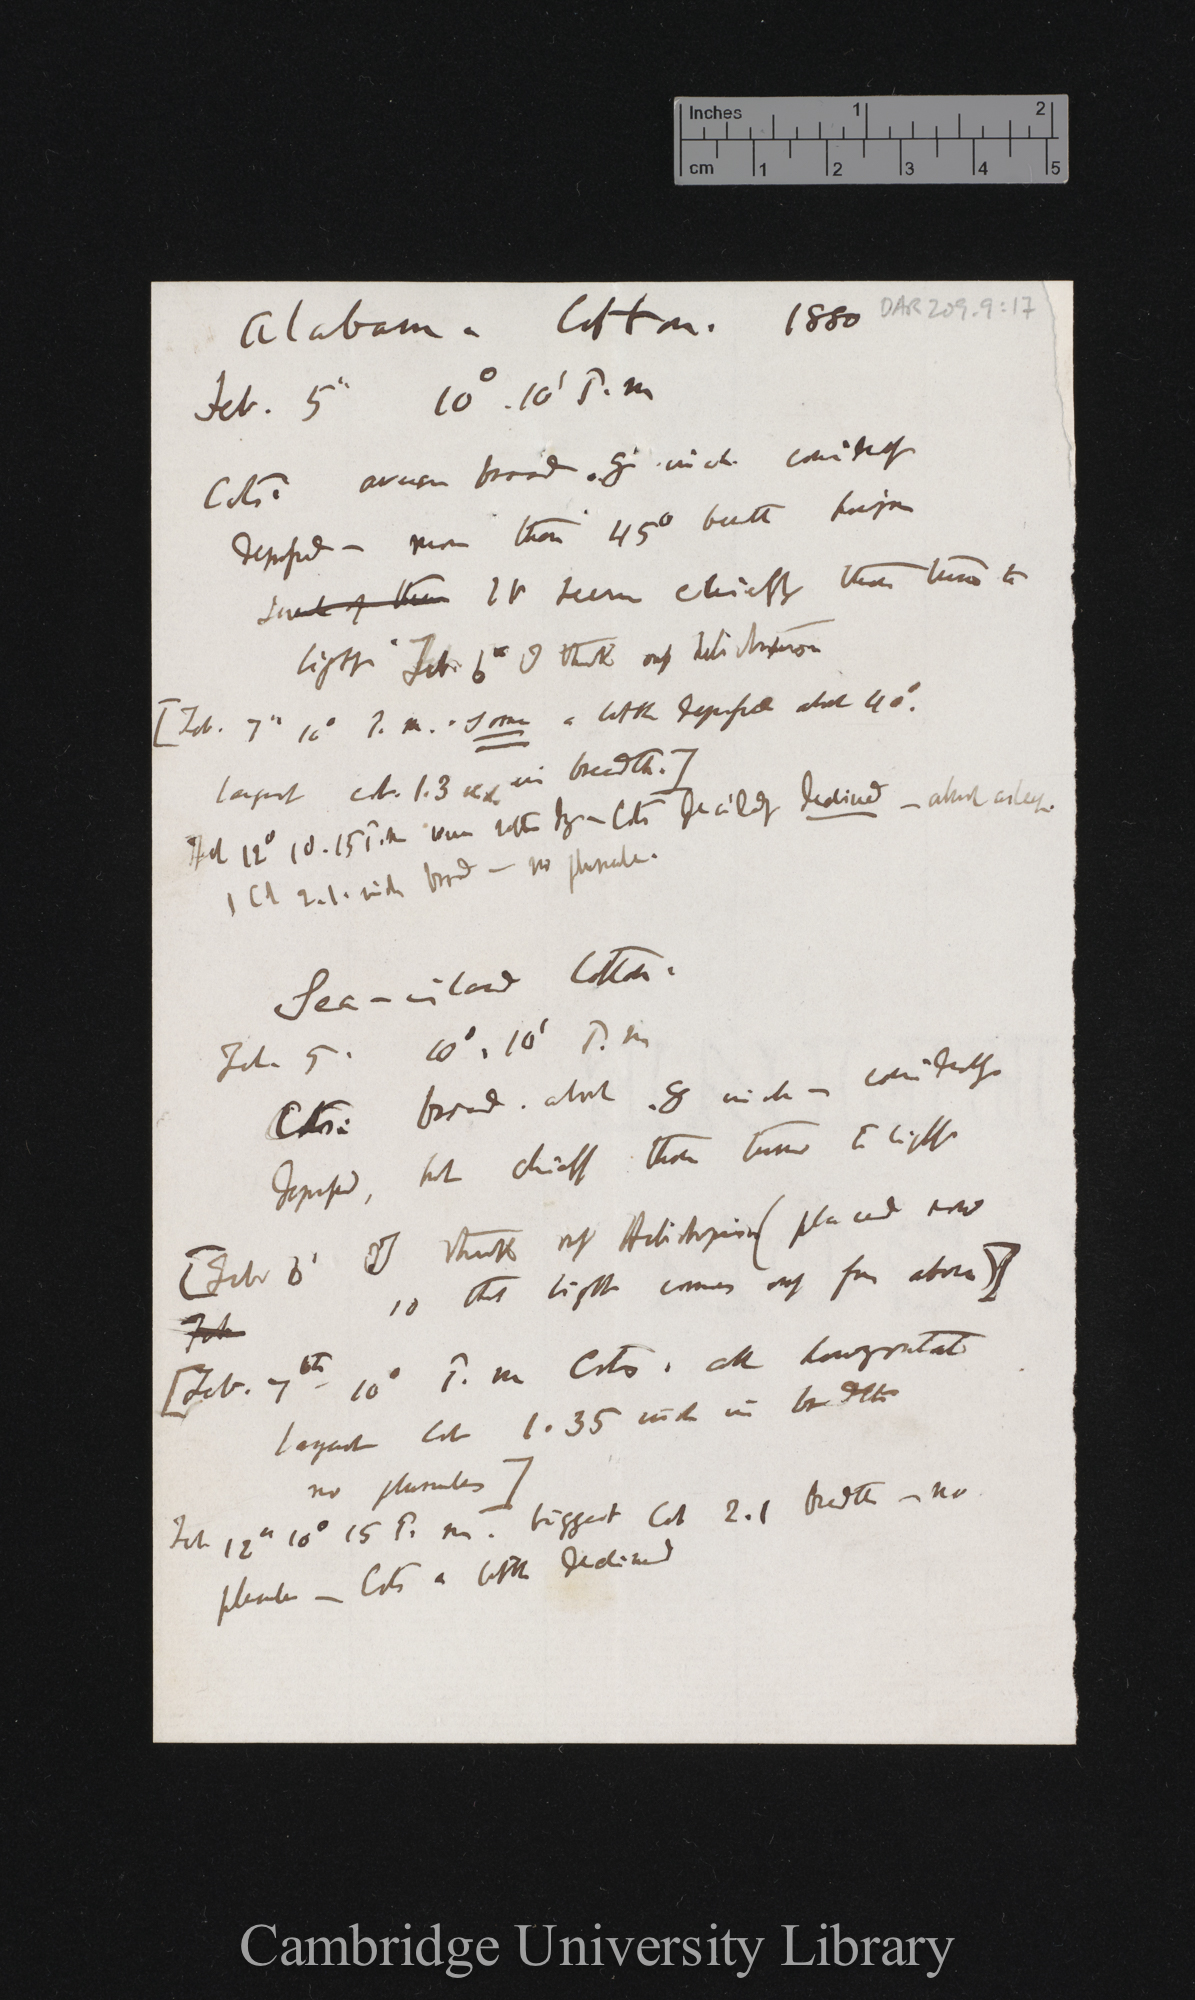 Inches 1 2
cm 1 2 3 4 5
DAR 209.9:17
Alabama Cotton. 1880
Feb. 5" 10°.10' P.m
Cots: broad .8 inch considerably
depressed — more than 45° beneath horizon
Some of them It seems chiefly those turned to
light. Feb. 6th I think only heliotropism
[Feb. 7" 10° P.m. Some a little depressed about 40°.
largest cot. 1.3 in breadth.]
Feb 12" 10.15 P.m Cots decidedly declined — about asleep.
1 Cot 2.1. inch broad — no plumule.
Sea-island Cotton.
Feb. 5. 10°. 10' P.m
Cots: broad. about .8 inch — considerably
depressed, but chiefly those turned to light
[Feb 6' I think only Heliotropism (placed now
so that light comes only from above)]
Feb
[Feb. 7th 10° P.m Cots. all horizontal
largest cot 1.35 inch in breadth
no plumules]
Feb 12" 10° 15 P.m. biggest Cot 2.1 breadth — no
plumule — Cots a little declined
Cambridge University Library